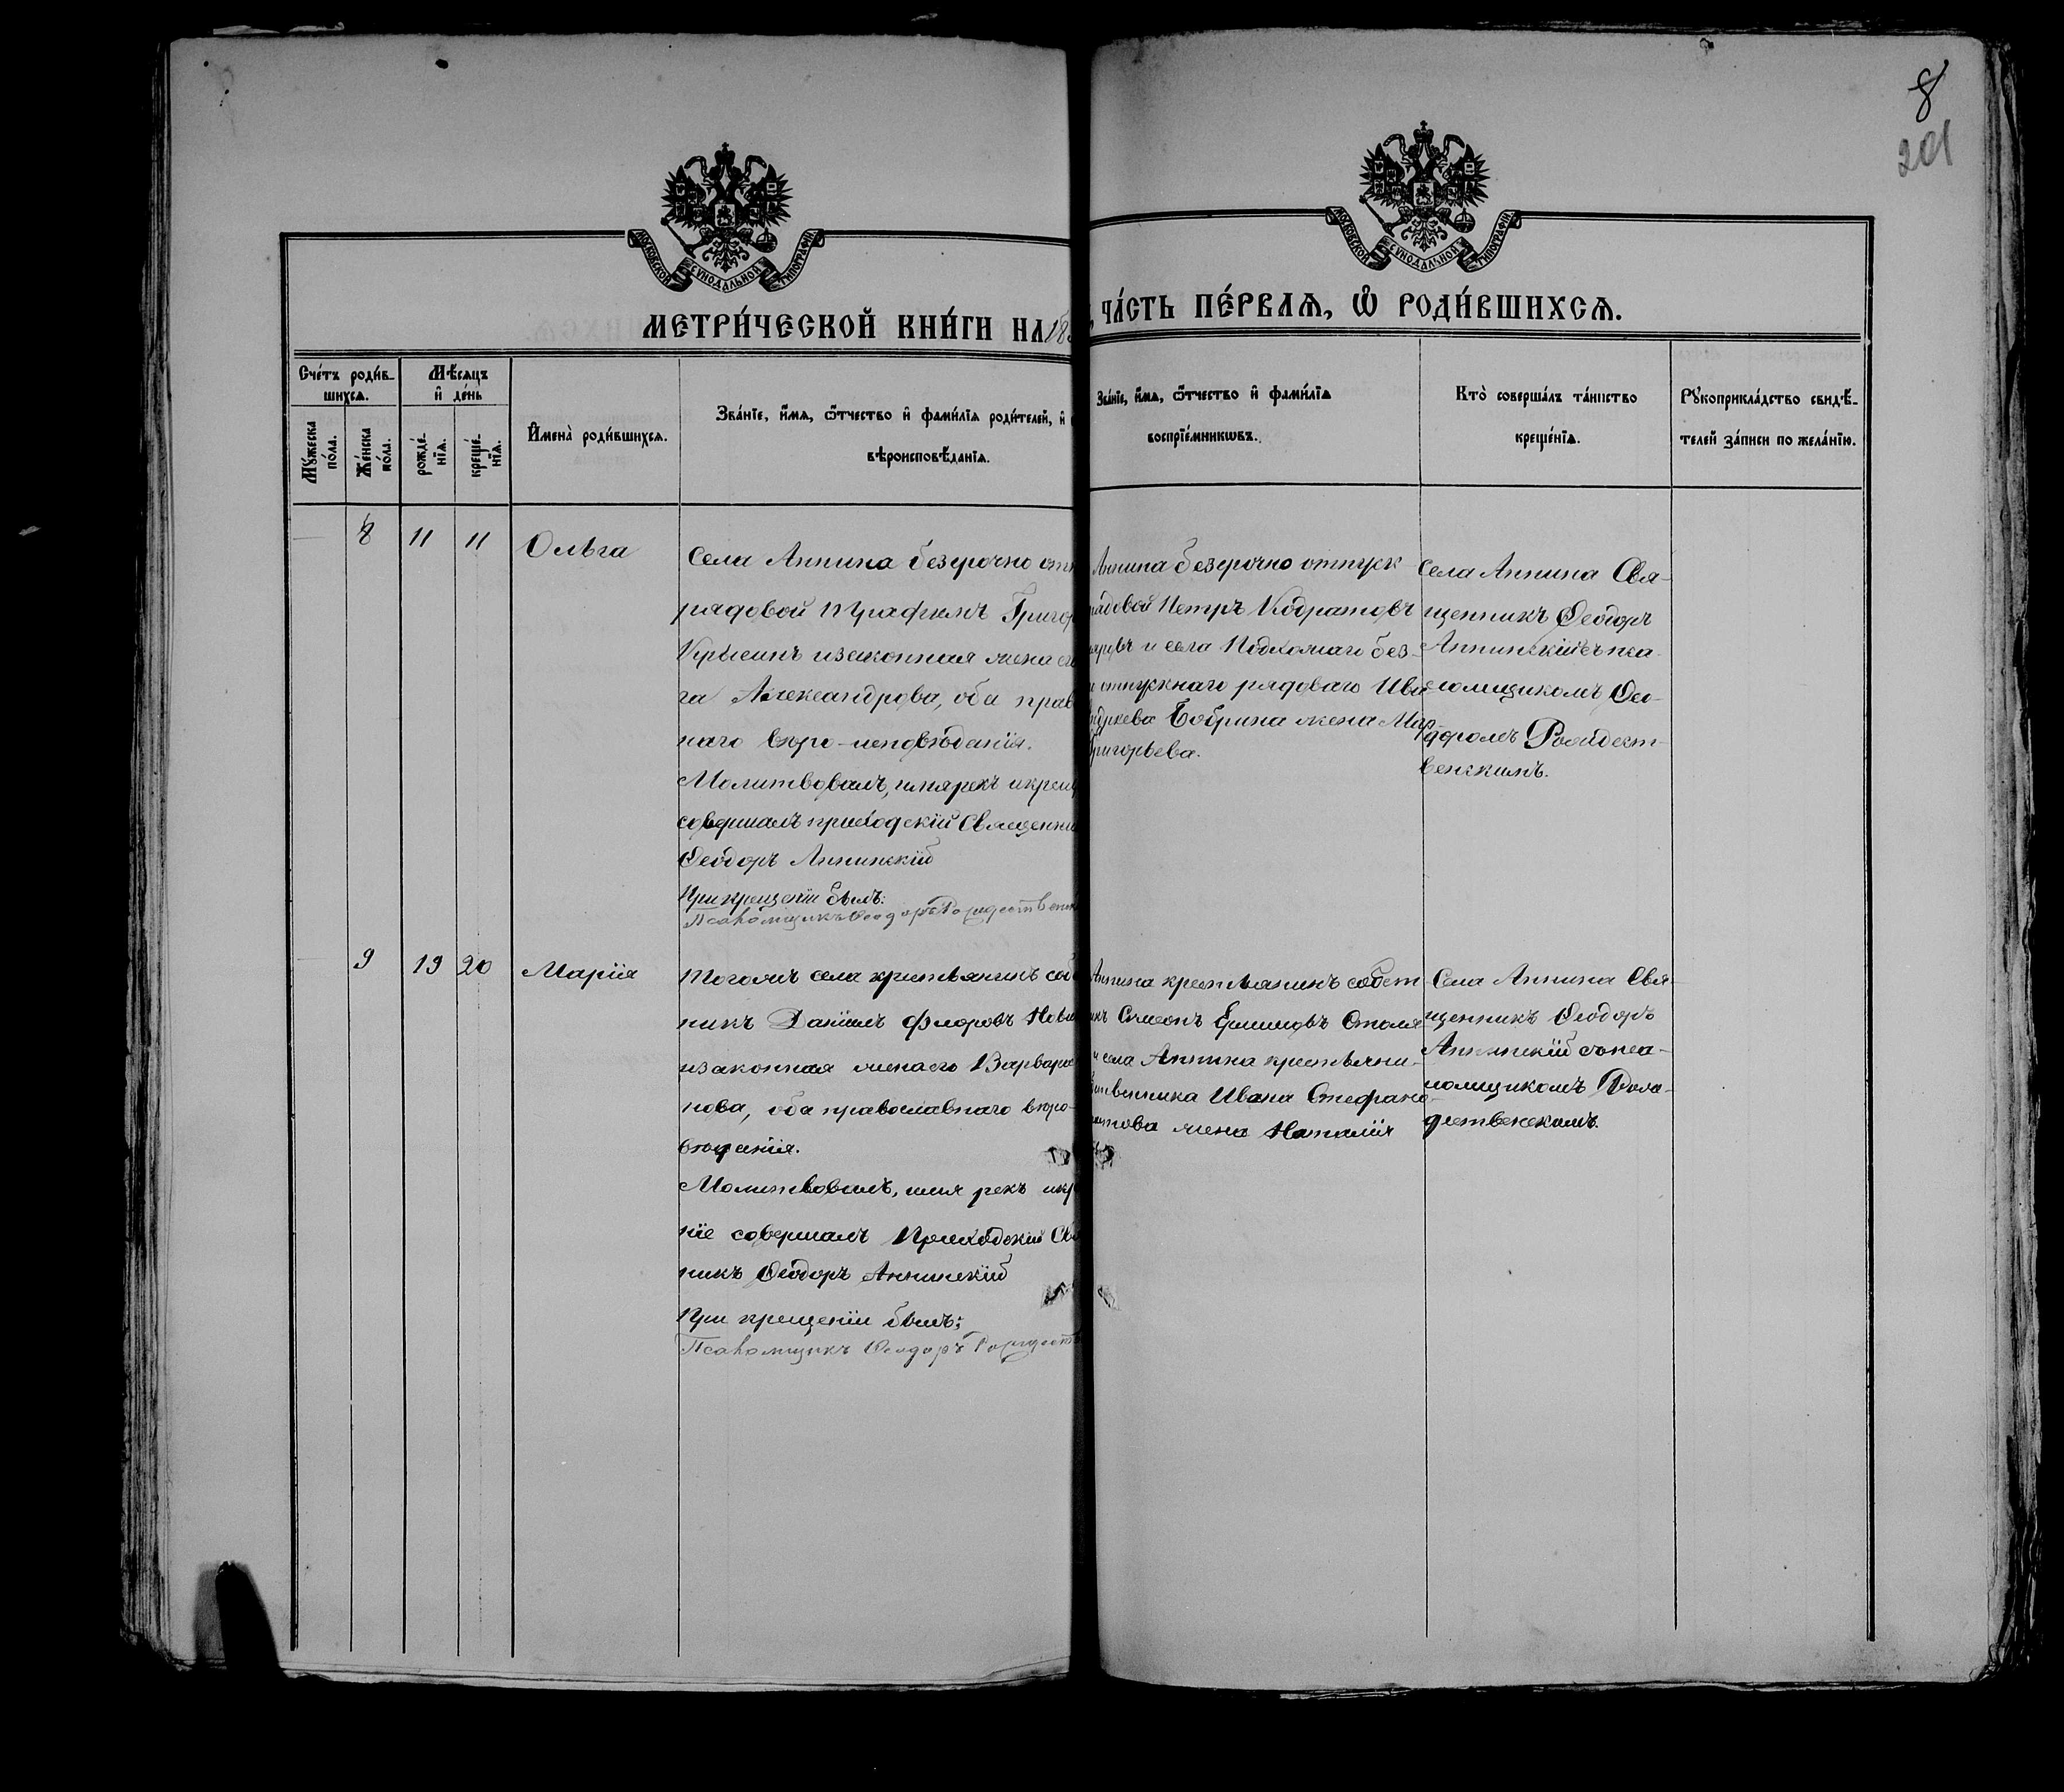 8
201
МОСКОВСКОЙ СѴНОДАЛЬНОЙ ТИПОГРАФІИ
МОСКОВСКОЙ СѴНОДАЛЬНОЙ ТИПОГРАФІИ
МЕТРИ́ЧЕСКОЙ КНИ́ГИ НА 18
ЧА́СТЬ ПЕ́РВАѦ, Ѡ҆ РОДИ́ВШИХСѦ.
Сче́тъ роди́в-
шихсѧ.
Мѣ́сѧцъ
и҆ де́нь
Мꙋ́жеска по́ла.
Же́нска по́ла.
рожде́-
нїѧ.
креще́-
нїѧ.
И҆мена̀ роди́вшихсѧ.
Зва́нїе, и҆́мѧ, ѻ҆́тчество и҆ фамі́лїѧ роди́телей, и҆
вѣроисповѣ́данїѧ.
Зва́нїе, и҆́мѧ, ѻ҆́тчество и҆ фамі́лїѧ
воспрїе́мникѡвъ.
Кто̀ соверша́лъ та́инство
креще́нїѧ.
Рꙋкоприкла́дство свидѣ́-
телей за́писи по жела́нїю.
8 11 11 Ольга
Села Аннина безсрочно отп
рядовой Трафимъ Григор
Курысинъ и законная жена е
га Александрова, оба прав
наго вѣро-исповѣданія.
Молитвовалъ, имя рекъ и крещ
совершалъ приходскій Священни
Ѳеодоръ Аннинскій
При крещеніи былъ:
Псаломщикъ Ѳеодоръ Рождественск
Аннина безсрочно отпуск
рядовой Петръ Кодратовъ
и села Подхожаго без-
отпускнаго рядоваго Ива
ндреева Бобрина жена Мар
Григорьева.
Села Аннина Свя-
щенникъ Ѳеодоръ
Аннинскій съ пса-
ломщикомъ Ѳео-
доромъ Рождест-
венскимъ.
9 19 20 Марія
Тогожъ села крестьянинъ соб
никъ Даніилъ Флоровъ Нови
и законная жена его Варвара
нова, оба православнаго вѣро-
вѣданія.
Молитвовалъ, имя рекъ и кр
ніе совершалъ Приходскій Св
никъ Ѳеодоръ Аннинскій
При крещеніи былъ:
Псаломщикъ Ѳеодоръ Рождест
Аннина крестьянинъ собст
Симеонъ Столя
и села Аннина крестьяни-
ственника Ивана Стефано
жена Наталія
Села Аннина Свя-
щенникъ Ѳеодоръ
Аннинскій съ пса-
ломщикомъ Рож-
дественскимъ.